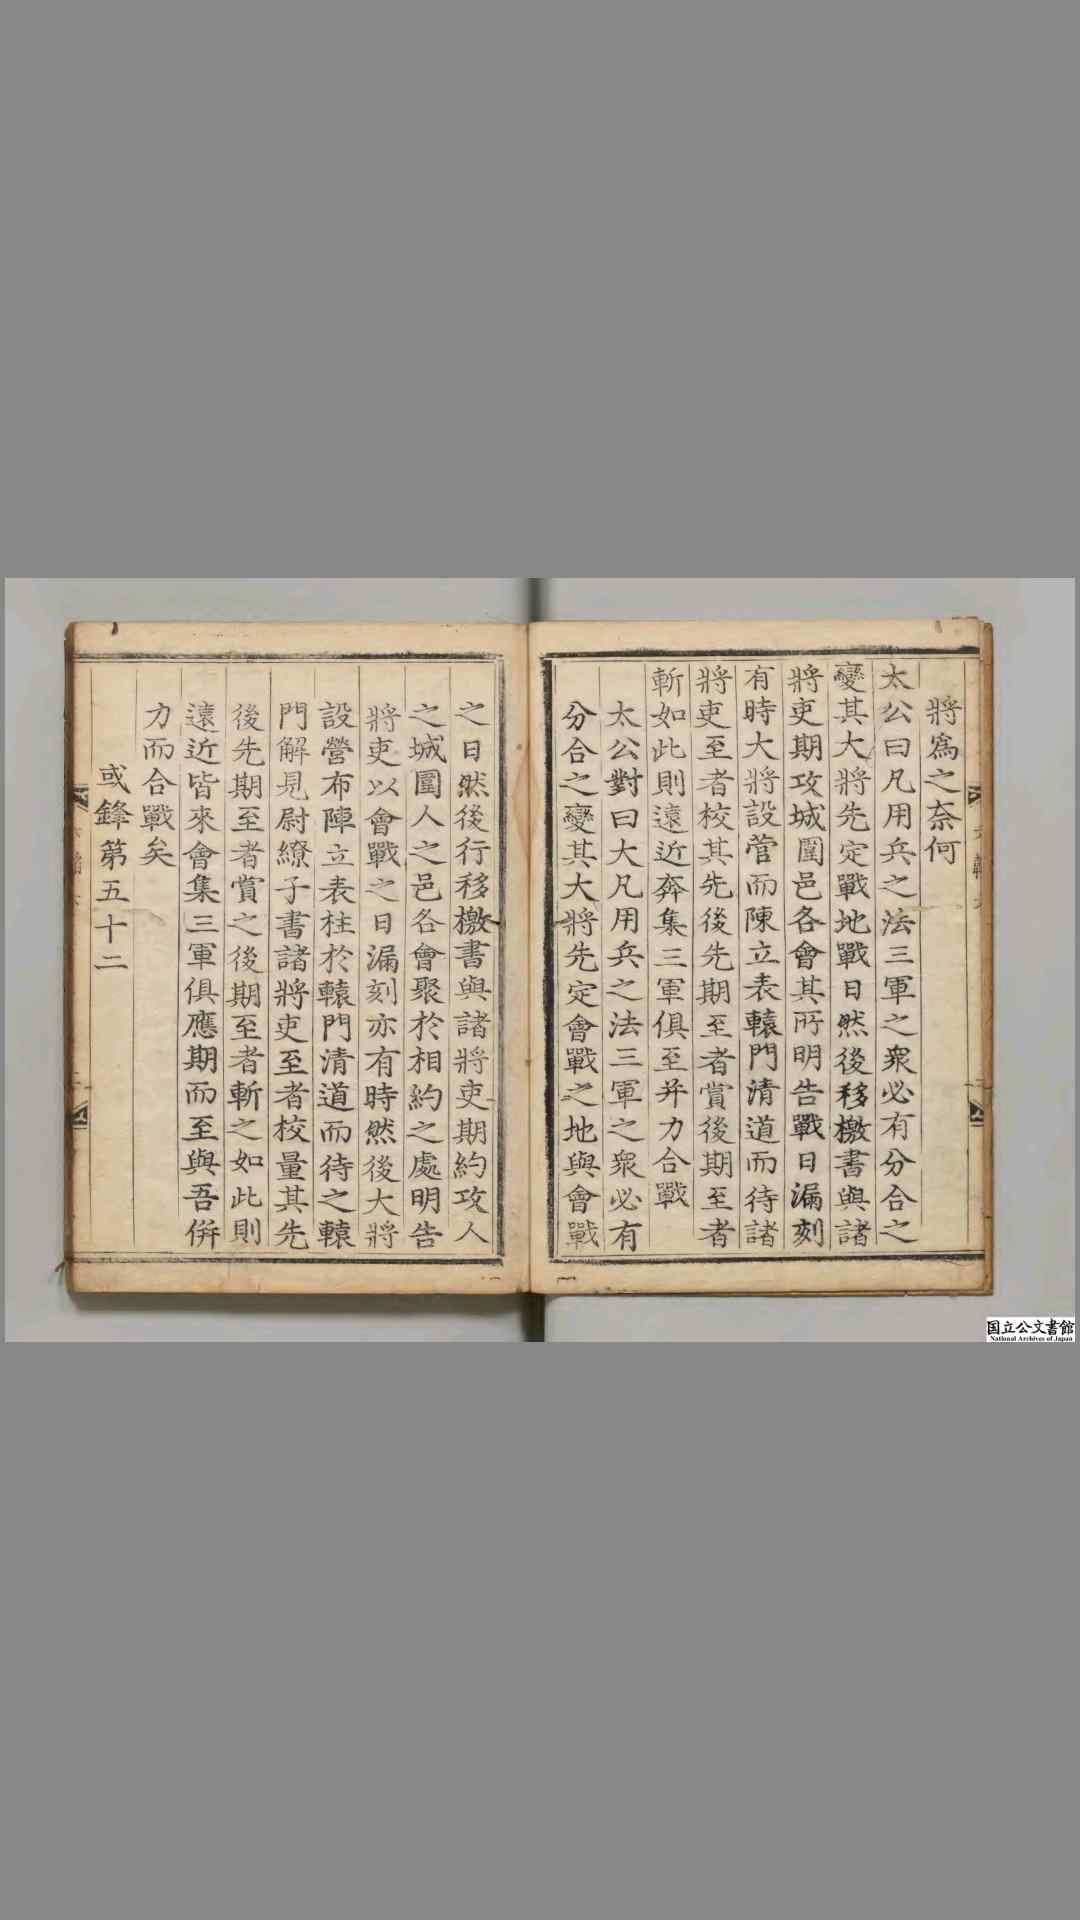 將爲之奈何
太公曰凡用兵之法三軍之衆必有分合之
變其大將先定戰地戰日然後移檄書與諸
將吏期攻城圍邑各會其所明告戰日漏刻
有時大將設營而陳立表轅門清道而待諸
將吏至者校其先後先期至者賞後期至者
斬如此則遠近奔集三軍俱至并力合戰
太公對曰大凡用兵之法三軍之衆必有
分合之變其大將先定會戰之地與會戰
之日然後行移檄書與諸將吏期約攻人
之城圍人之邑各會聚於相約之處明告
將吏以會戰之日漏刻亦有時然後大將
設營布陣立表柱於轅門清道而待之轅
門解見尉繚子書諸將吏至者校量其先
後先期至者賞之後期至者斬之如此則
遠近皆來會集三軍俱應期而至與吾倂
力而合戰矣
或鋒第五十二
国立公文書館
National Archives of Japan